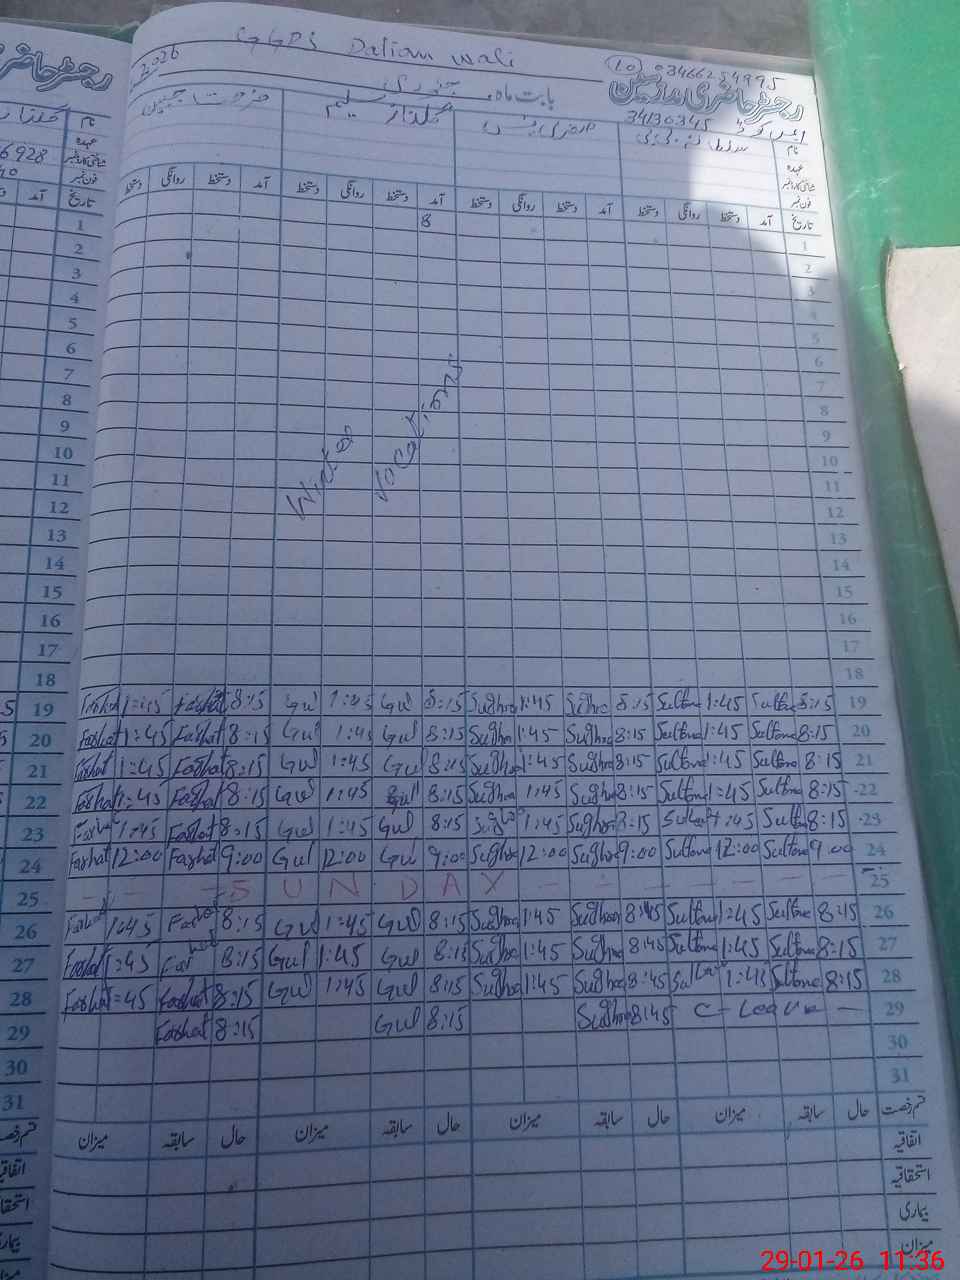 GGPS Daliam wali
2026
10 03466254995
رجسٹر حاضری مدرسین
بابت ماہ جنوری
34130345
نام
عہدہ
شناختی کارڈ نمبر
فون نمبر
روانگی دستخط آمد دستخط روانگی دستخط آمد دستخط روانگی دستخط آمد دستخط روانگی دستخط آمد تاریخ
1 8 1
2 2
3 3
4 4
5 5
6 6
7 7
8 8
9 9
10 10
11 11
12 12
13 13
14 14
15 15
16 16
17 17
18 18
Winter vocations
19 Farhat 1:45 Farhat 8:15 Gul 1:45 Gul 8:15 Sughra 1:45 Sughra 8:15 Sultana 1:45 Sultana 8:15 19
20 Farhat 1:45 Farhat 8:15 Gul 1:45 Gul 8:15 Sughra 1:45 Sughra 8:15 Sultana 1:45 Sultana 8:15 20
21 Farhat 1:45 Farhat 8:15 Gul 1:45 Gul 8:15 Sughra 1:45 Sughra 8:15 Sultana 1:45 Sultana 8:15 21
22 Farhat 1:45 Farhat 8:15 Gul 1:45 Gul 8:15 Sughra 1:45 Sughra 8:15 Sultana 1:45 Sultana 8:15 22
23 Farhat 1:45 Farhat 8:15 Gul 1:45 Gul 8:15 Sughra 1:45 Sughra 8:15 Sultana 1:45 Sultana 8:15 23
24 Farhat 12:00 Farhat 9:00 Gul 12:00 Gul 9:00 Sughra 12:00 Sughra 9:00 Sultana 12:00 Sultana 9:00 24
25 - - - S U N D A Y - - - - - - - 25
26 Farhat 1:45 Farhat 8:15 Gul 1:45 Gul 8:15 Sughra 1:45 Sughra 8:45 Sultana 1:45 Sultana 8:15 26
27 Farhat 1:45 Farhat 8:15 Gul 1:45 Gul 8:15 Sughra 1:45 Sughra 8:45 Sultana 1:45 Sultana 8:15 27
28 Farhat 1:45 Farhat 8:15 Gul 1:45 Gul 8:15 Sughra 1:45 Sughra 8:45 Sultana 1:45 Sultana 8:15 28
29 Farhat 8:15 Gul 8:15 Sughra 8:45 C- Leave - 29
30 30
31 31
میزان سابقہ حال میزان سابقہ حال میزان سابقہ حال میزان سابقہ حال قسم رخصت
اتفاقیہ
استحقاقیہ
بیماری
میزان
29-01-26 11:36